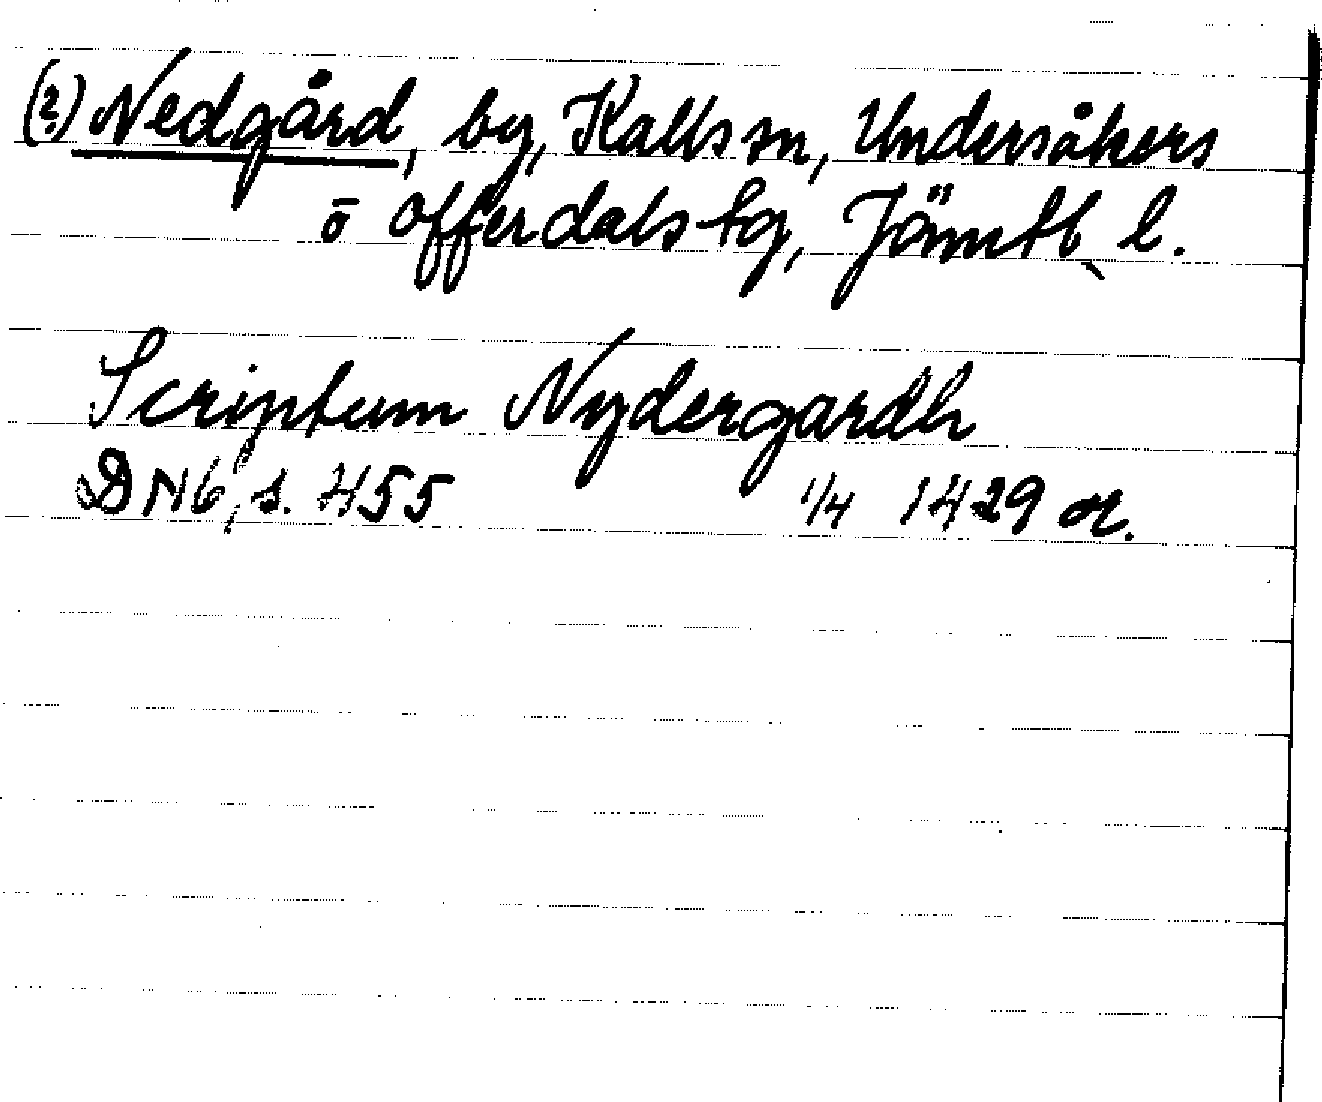 (?) Nedgård, by, Kalls sn, Undersåkers
o offerdals tg, Jämtl, l.
Scriptum Nydergardh
DN6, s. 455 1/4 1429 or.